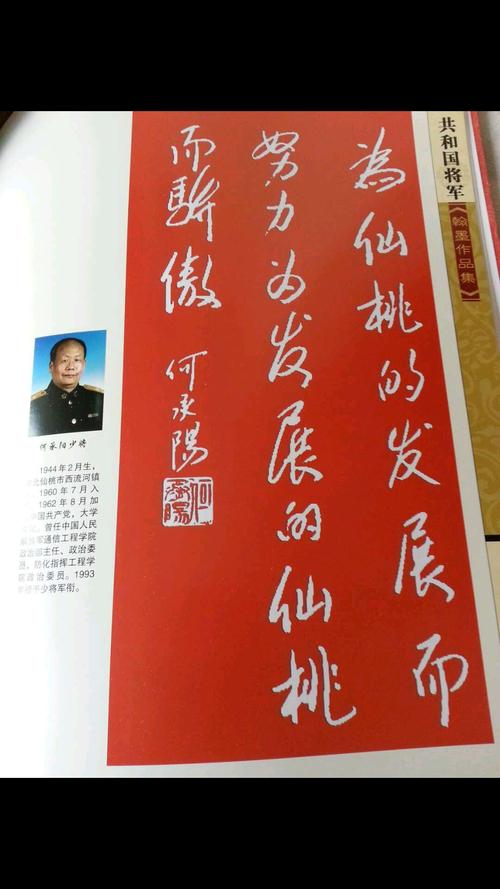 共和国将军
《翰墨作品集》
为仙桃的发展而
努力为发展的仙桃
而骄傲
何承阳
何承阳少将
1944年2月生，
北仙桃市西流河镇
1960年7月入
1962年8月加
国共产党，大学
曾任中国人民
军通信工程学院
政治部主任、政治委
员，防化指挥工程学
院政治委员。1993
授予少将军衔。